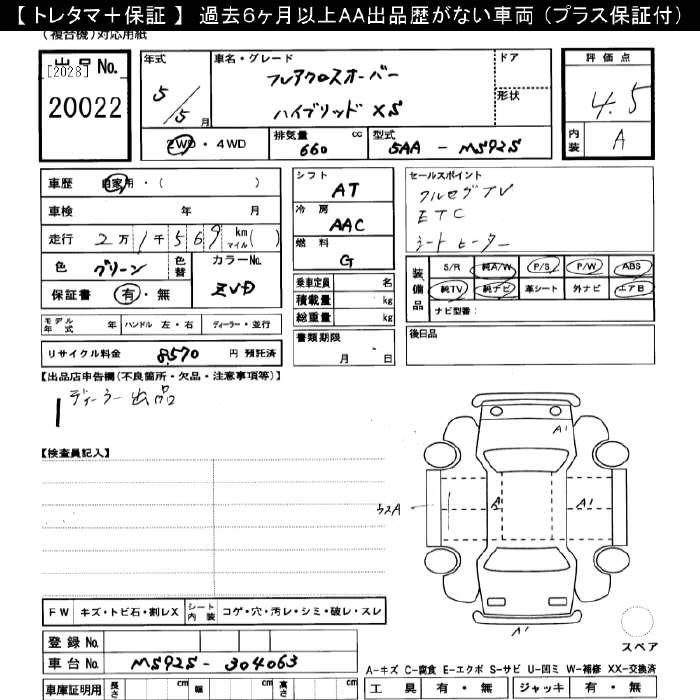 【トレタマ+保証】 過去6ヶ月以上AA出品歴がない車両 (プラス保証付)
(複合機)対応用紙
出品No.
[2028]
20022
年式
5/5月
車名・グレード
フレアクロスオーバー
ハイブリッド XS
ドア
形状
2WD・4WD
排気量 cc
660
型式
5AA - MS92S
評価点
4.5
内装 A
車歴 自家用・( )
車検 年 月
走行 2万1千569 km マイル( )
色 グリーン 色替
カラーNo.
ZVD
保証書 有・無
モデル年式 年 ハンドル 左・右 ディーラー・並行
リサイクル料金 8,570 円 預託済
シフト
AT
冷房
AAC
燃料
G
乗車定員 名
積載量 kg
総重量 kg
書類期限
月 日
セールスポイント
フルセグTV
ETC
シートヒーター
装備品
S/R 純A/W P/S P/W ABS
純TV 純ナビ 革シート 外ナビ エアB
ナビ型番:
後日品
【出品店申告欄(不良箇所・欠品・注意事項等)】
ディーラー出品
【検査員記入】
A1
A A1
A1
FW キズ・トビ石・割レX シート内装 コゲ・穴・汚レ・シミ・破レ・スレ
登録No.
車台No. MS92S-304063
車庫証明用 長さ cm 幅 cm 高さ cm
スペア
A-キズ C-腐食 E-エクボ S-サビ U-凹ミ W-補修 XX-交換済
工具 有・無 ジャッキ 有・無